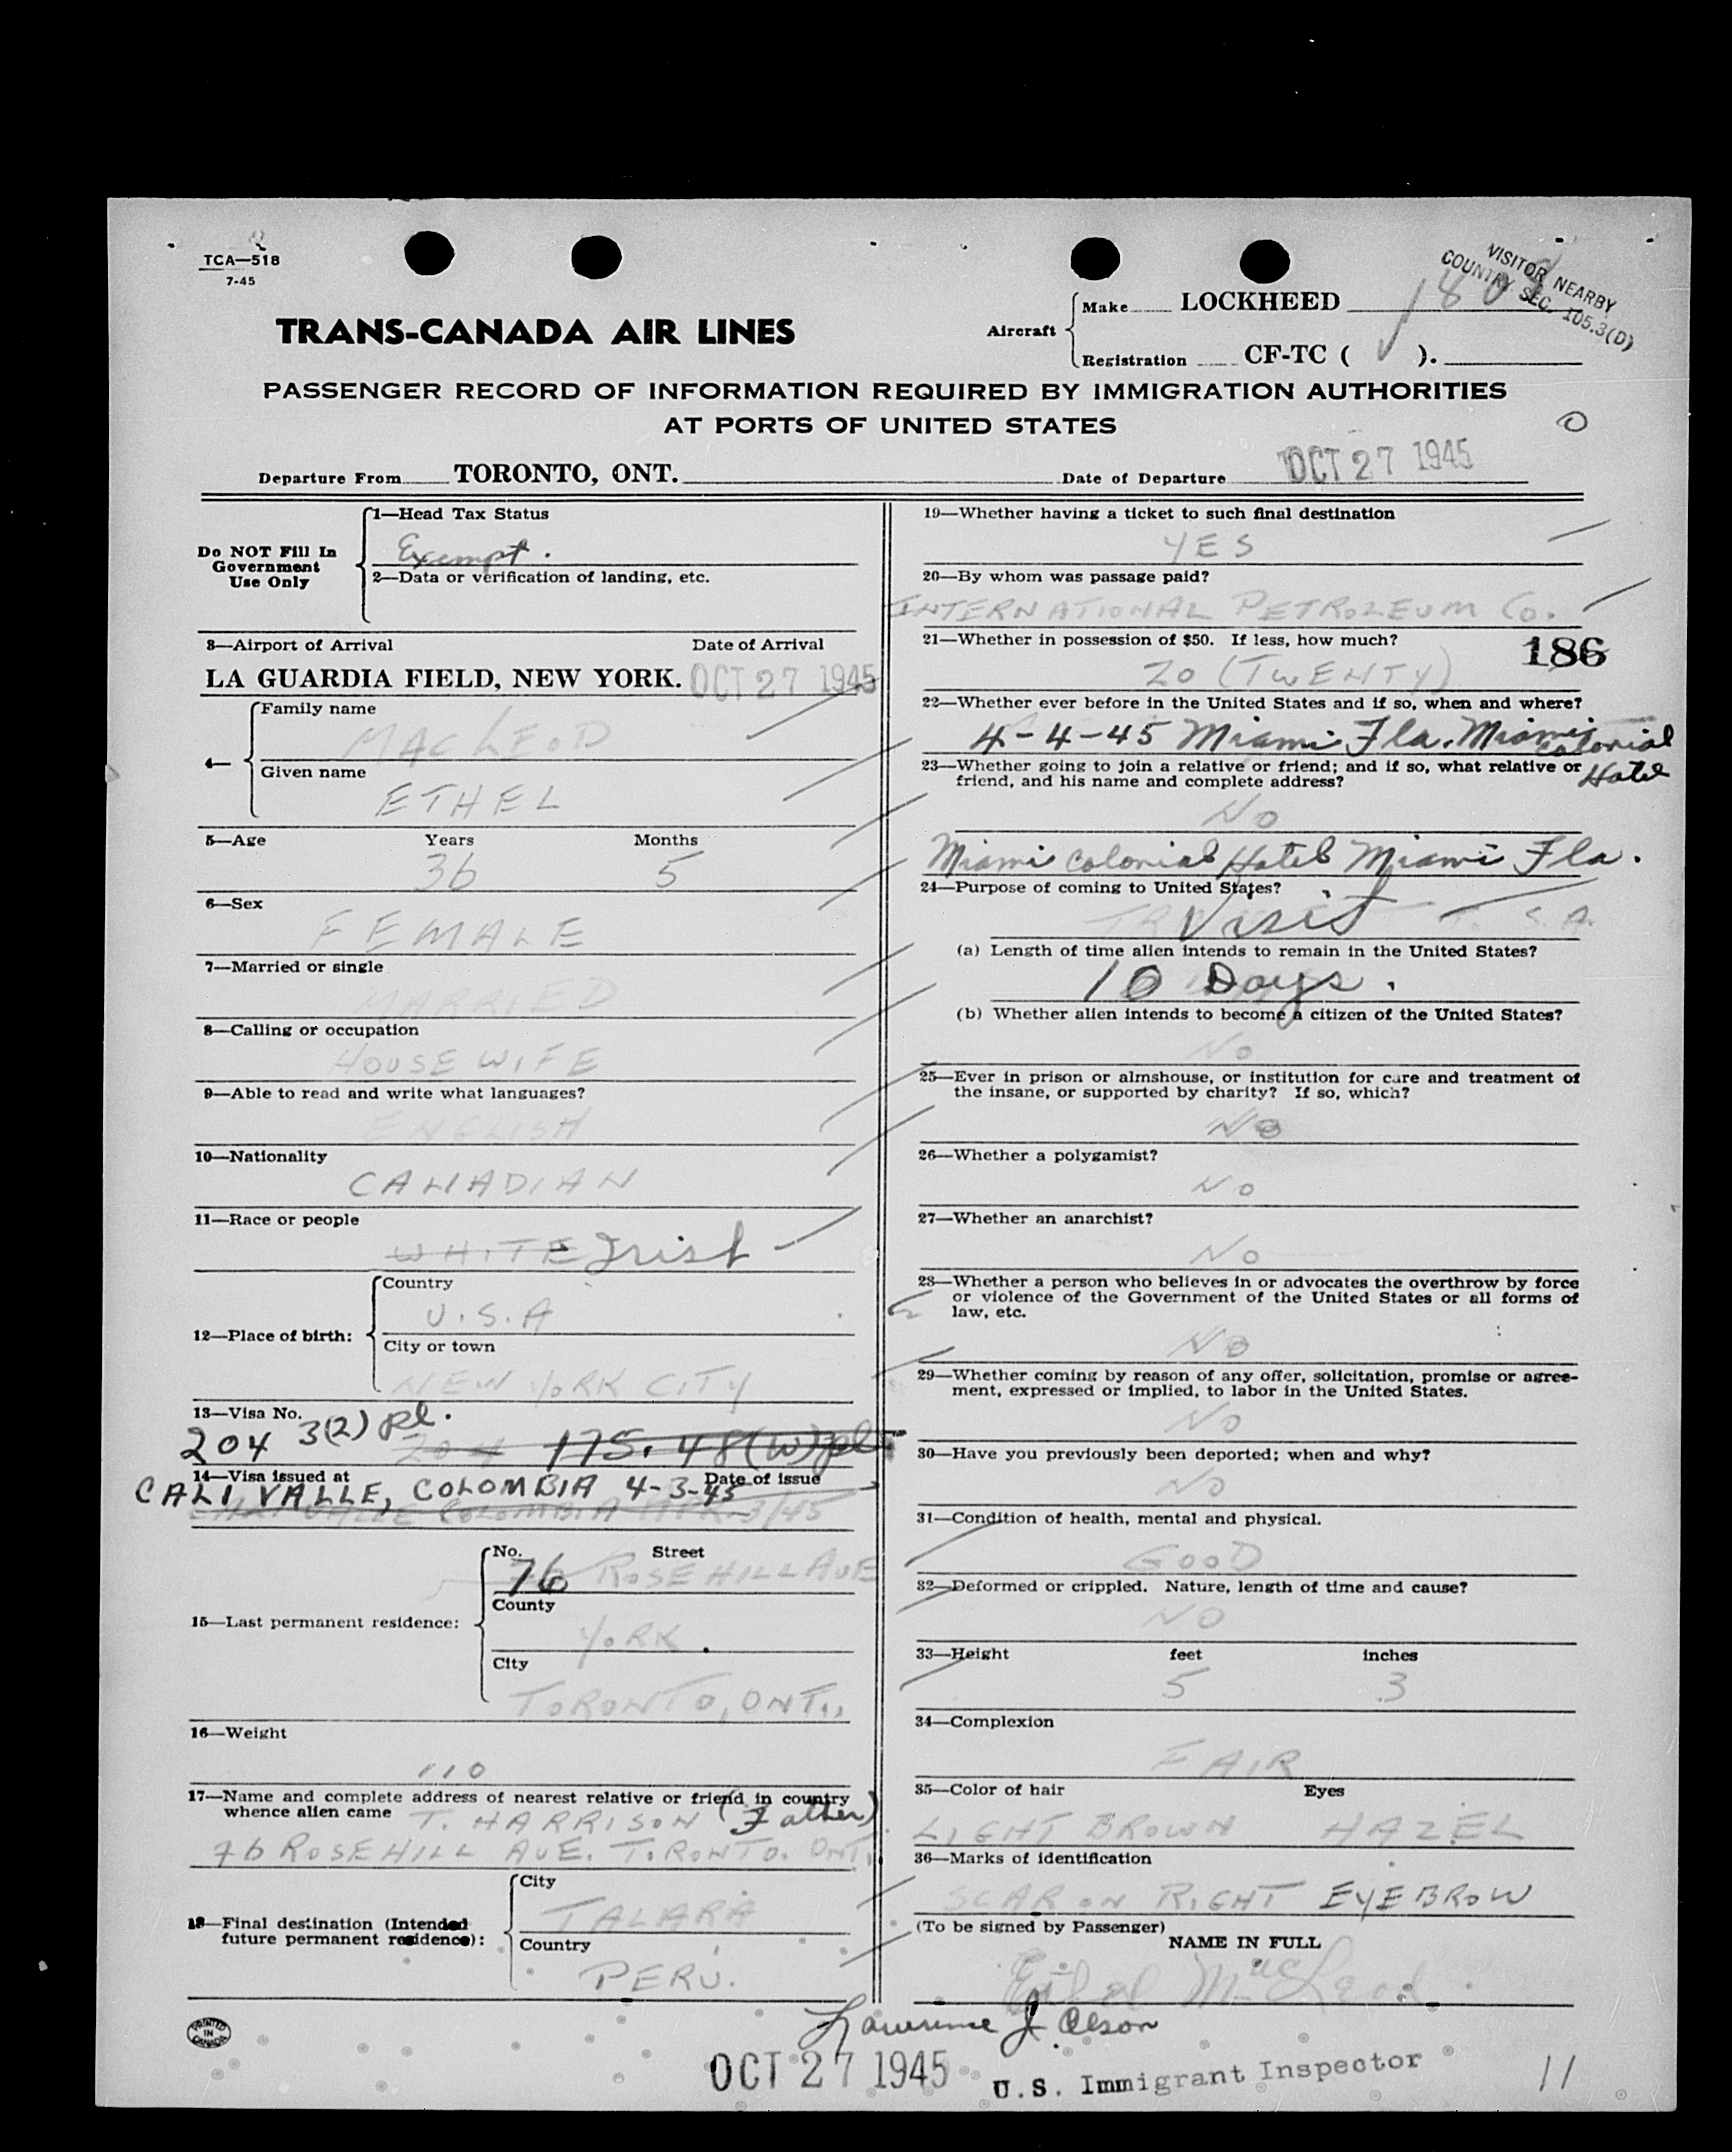 TCA—518
7-45
VISITOR NEARBY
COUNTRY SEC. 105.3(D)
TRANS-CANADA AIR LINES
Aircraft
Make LOCKHEED
Registration CF-TC ( ).
PASSENGER RECORD OF INFORMATION REQUIRED BY IMMIGRATION AUTHORITIES
AT PORTS OF UNITED STATES
Departure From TORONTO, ONT. Date of Departure OCT 27 1945
Do NOT Fill In
Government
Use Only
1—Head Tax Status
Exempt.
2—Data or verification of landing, etc.
3—Airport of Arrival Date of Arrival
LA GUARDIA FIELD, NEW YORK. OCT 27 1945
4—
Family name
MACLEOD
Given name
ETHEL
5—Age Years Months
36 5
6—Sex
FEMALE
7—Married or single
MARRIED
8—Calling or occupation
HOUSEWIFE
9—Able to read and write what languages?
ENGLISH
10—Nationality
CANADIAN
11—Race or people
WHITE Irish
12—Place of birth:
Country
U.S.A
City or town
NEW YORK CITY
13—Visa No.
204 3(2) pl. 204 175. 48(W)pl
14—Visa issued at Date of issue
CALI VALLE, COLOMBIA 4-3-45
CALI VALLE COLOMBIA APR. 3/45
15—Last permanent residence:
No. Street
76 ROSEHILL AVE
County
YORK.
City
TORONTO, ONT.,
16—Weight
110
17—Name and complete address of nearest relative or friend in country
whence alien came T. HARRISON (Father)
76 ROSEHILL AVE. TORONTO. ONT.
18—Final destination (Intended
future permanent residence):
City
TALARA
Country
PERU.
PRINTED
IN
CANADA
19—Whether having a ticket to such final destination
YES
20—By whom was passage paid?
INTERNATIONAL PETROLEUM CO.
21—Whether in possession of $50. If less, how much?
186
20 (TWENTY)
22—Whether ever before in the United States and if so, when and where?
4-4-45 Miami Fla. Miami
Colonial
Hotel
23—Whether going to join a relative or friend; and if so, what relative or
friend, and his name and complete address?
NO
Miami Colonial Hotel Miami Fla.
24—Purpose of coming to United States?
Visit
(a) Length of time alien intends to remain in the United States?
10 Days.
(b) Whether alien intends to become a citizen of the United States?
NO
25—Ever in prison or almshouse, or institution for care and treatment of
the insane, or supported by charity? If so, which?
NO
26—Whether a polygamist?
NO
27—Whether an anarchist?
NO
28—Whether a person who believes in or advocates the overthrow by force
or violence of the Government of the United States or all forms of
law, etc.
NO
29—Whether coming by reason of any offer, solicitation, promise or agree-
ment, expressed or implied, to labor in the United States.
NO
30—Have you previously been deported; when and why?
NO
31—Condition of health, mental and physical.
GOOD
32—Deformed or crippled. Nature, length of time and cause?
NO
33—Height feet inches
5 3
34—Complexion
FAIR
35—Color of hair Eyes
LIGHT BROWN HAZEL
36—Marks of identification
SCAR ON RIGHT EYEBROW
(To be signed by Passenger)
NAME IN FULL
Ethel MacLeod
Lawrence J. Olson
OCT 27 1945 U.S. Immigrant Inspector 11